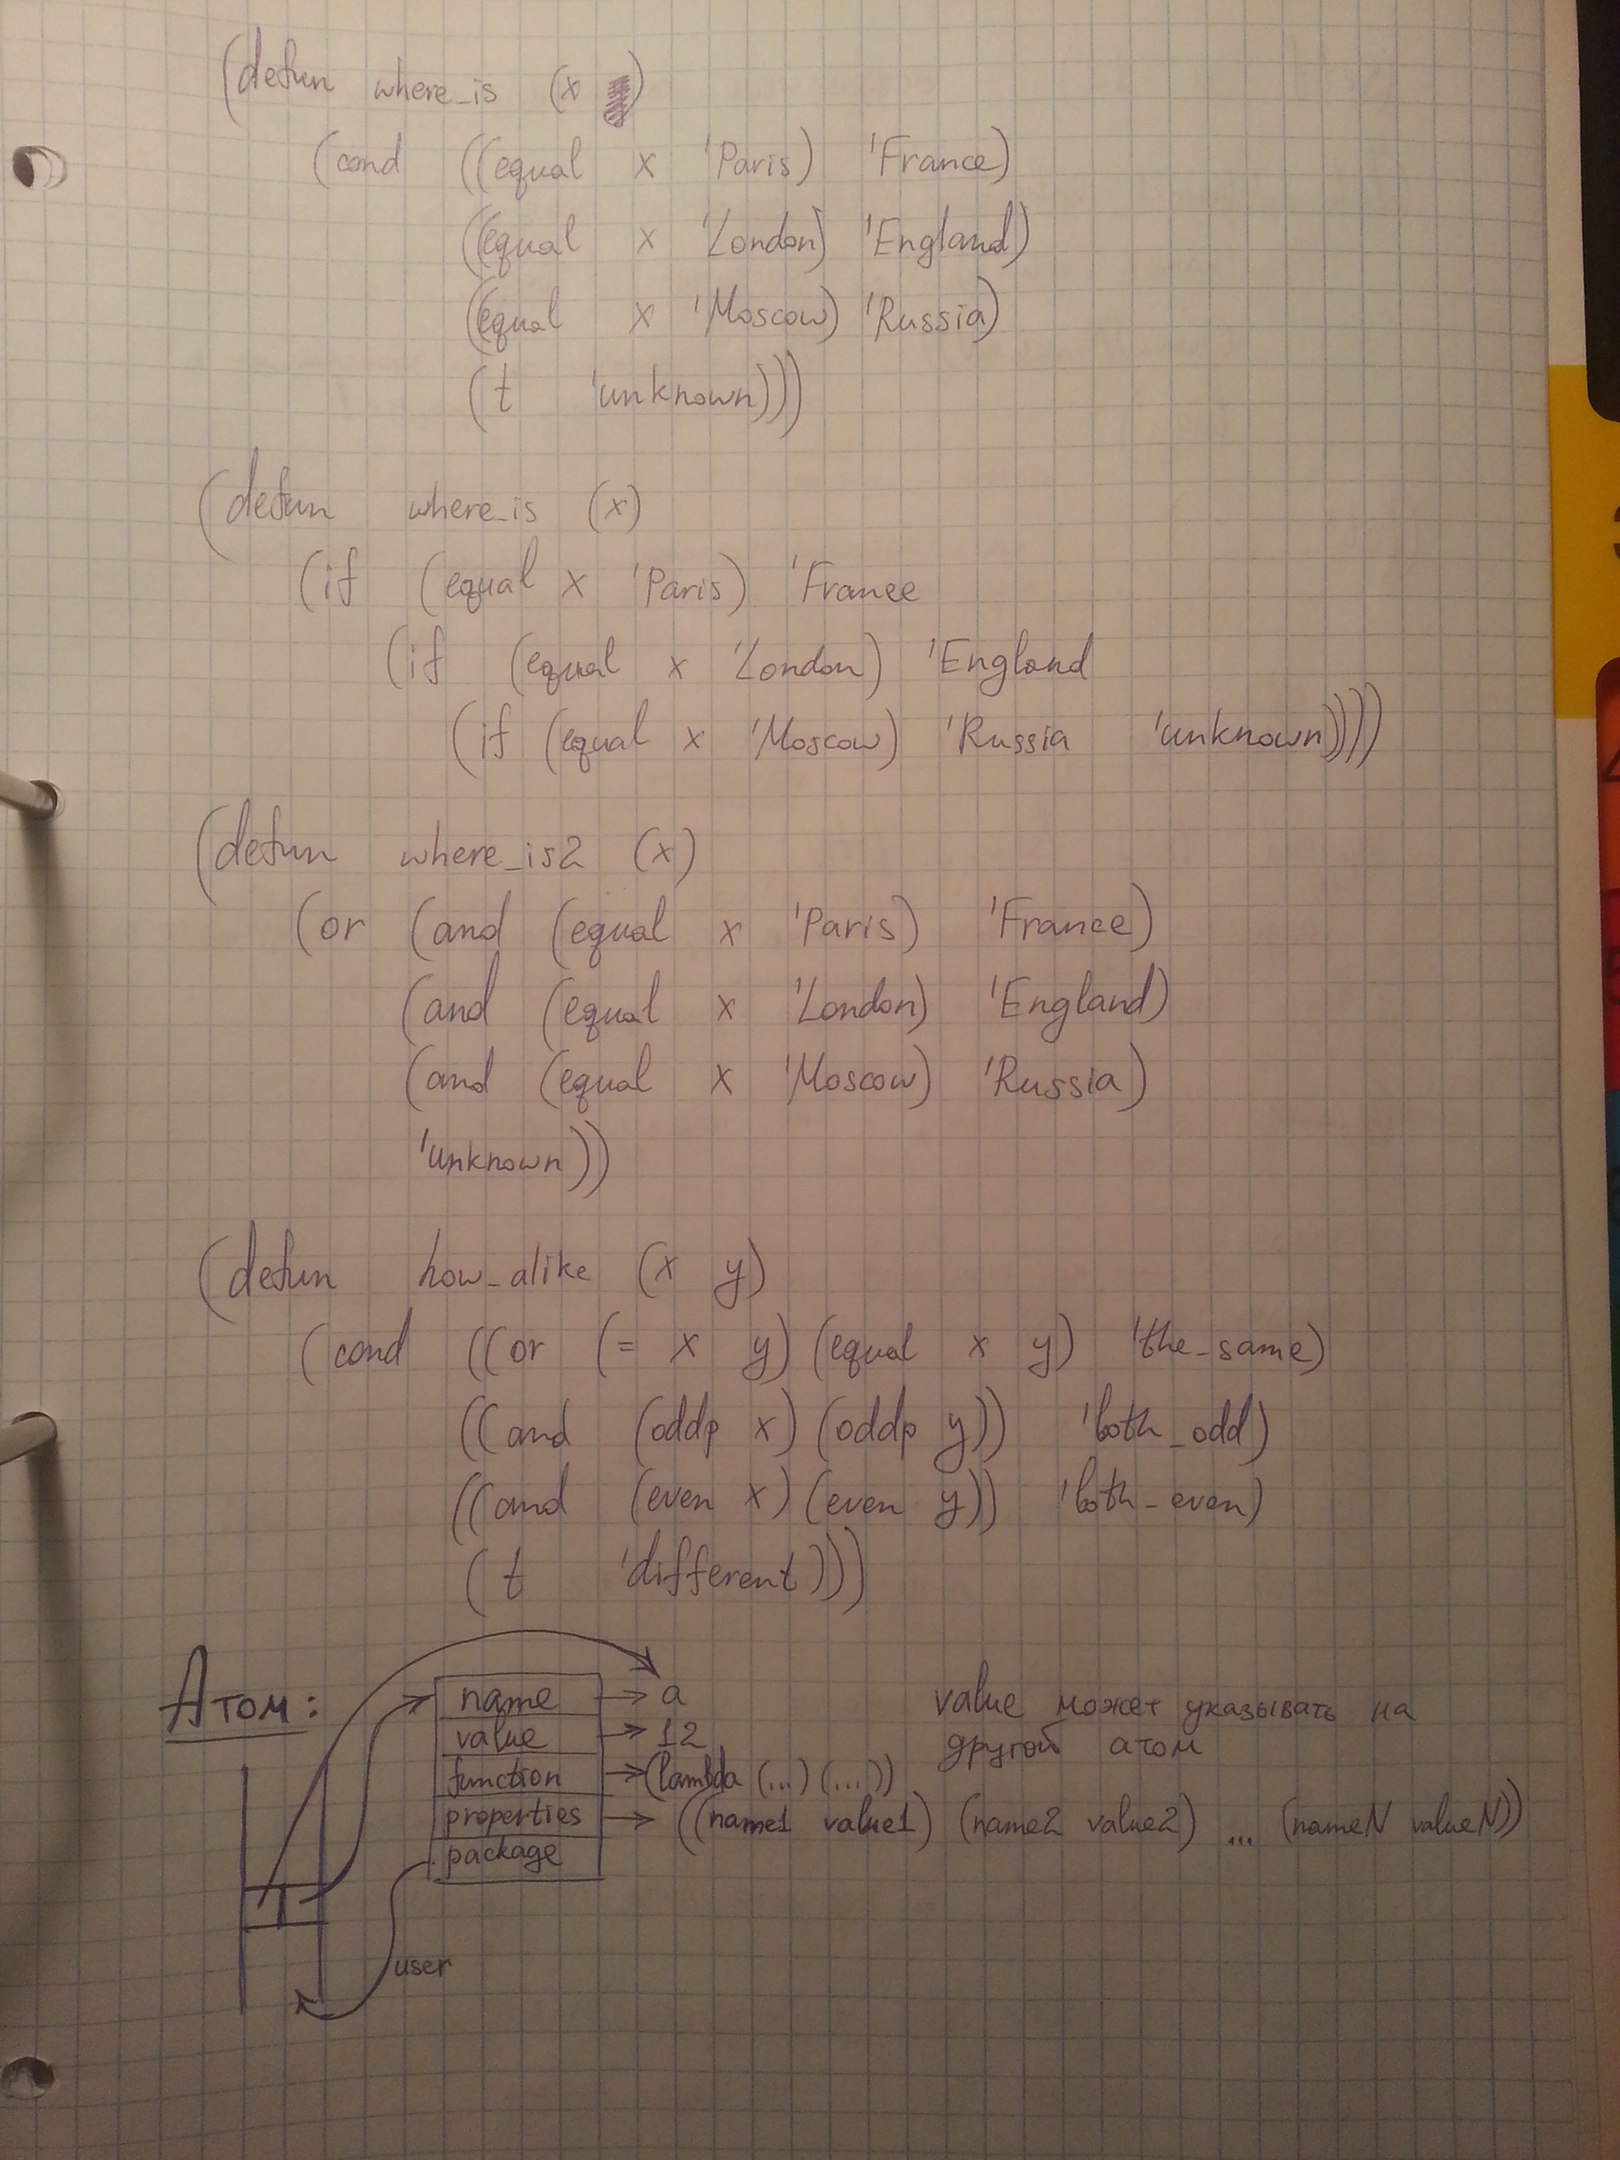 (defun where_is (x )
(cond ((equal x 'Paris) 'France)
((equal x 'London) 'England)
((equal x 'Moscow) 'Russia)
(t 'unknown)))
(defun where_is (x)
(if (equal x 'Paris) 'France
(if (equal x 'London) 'England
(if (equal x 'Moscow) 'Russia 'unknown))))
(defun where_is2 (x)
(or (and (equal x 'Paris) 'France)
(and (equal x 'London) 'England)
(and (equal x 'Moscow) 'Russia)
'unknown))
(defun how_alike (x y)
(cond ((or (= x y) (equal x y) 'the_same)
((and (oddp x) (oddp y)) 'both_odd)
((and (even x) (even y)) 'both_even)
(t 'different)))
Атом:
name → a
value → 12
function → (lambda (...) (...))
properties → ((name1 value1) (name2 value2) ... (nameN valueN))
package
user
value может указывать на
другой атом